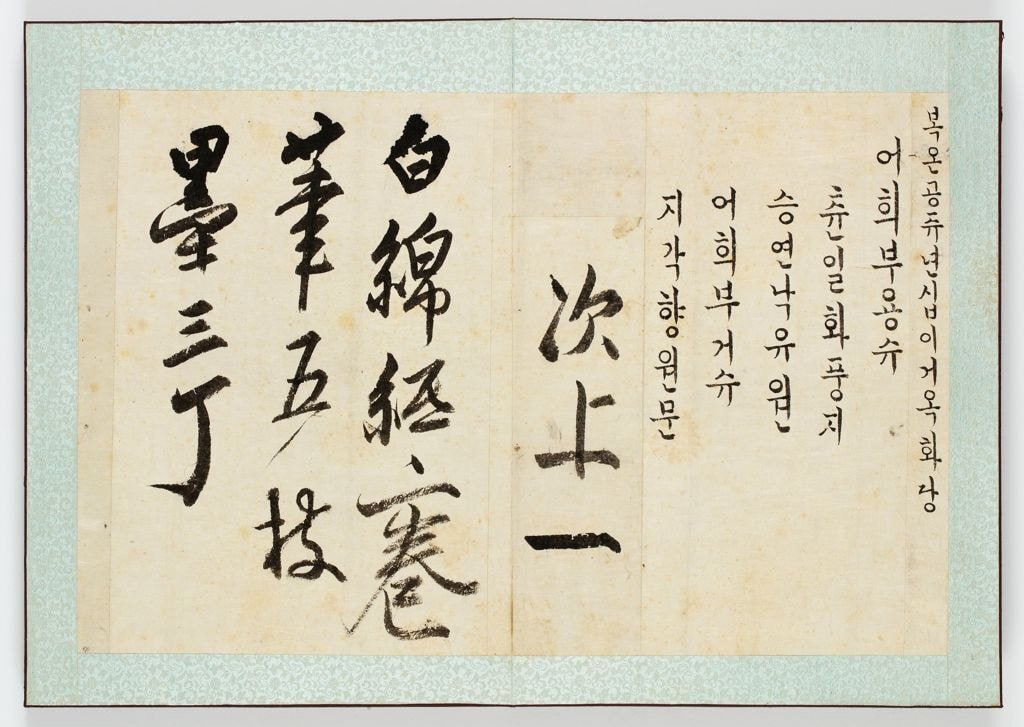 복온공쥬년심이거옥화당
어희부용슈
츈일화풍지
승연낙유원
어희부거슈
지각향원문
次上
一
白綿紙一卷
筆五枝
墨三丁